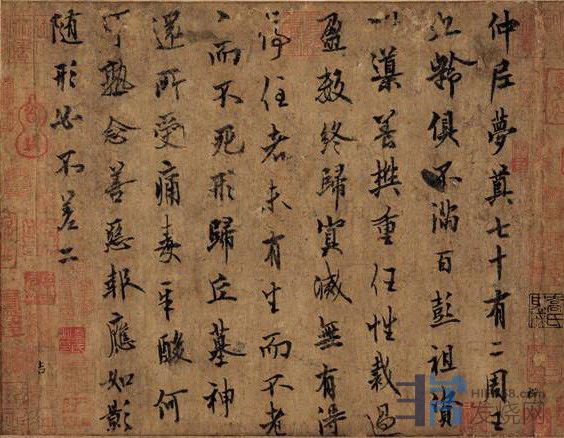 仲尼夢奠七十有二周王
九齡俱不滿百彭祖資
以導養樊重任性裁過
盈數終歸冥滅無有得
停住者未有生而不老
〻而不死形歸丘墓神
還所受痛毒辛酸何
可熟念善惡報應如影
隨形必不差二
发烧网